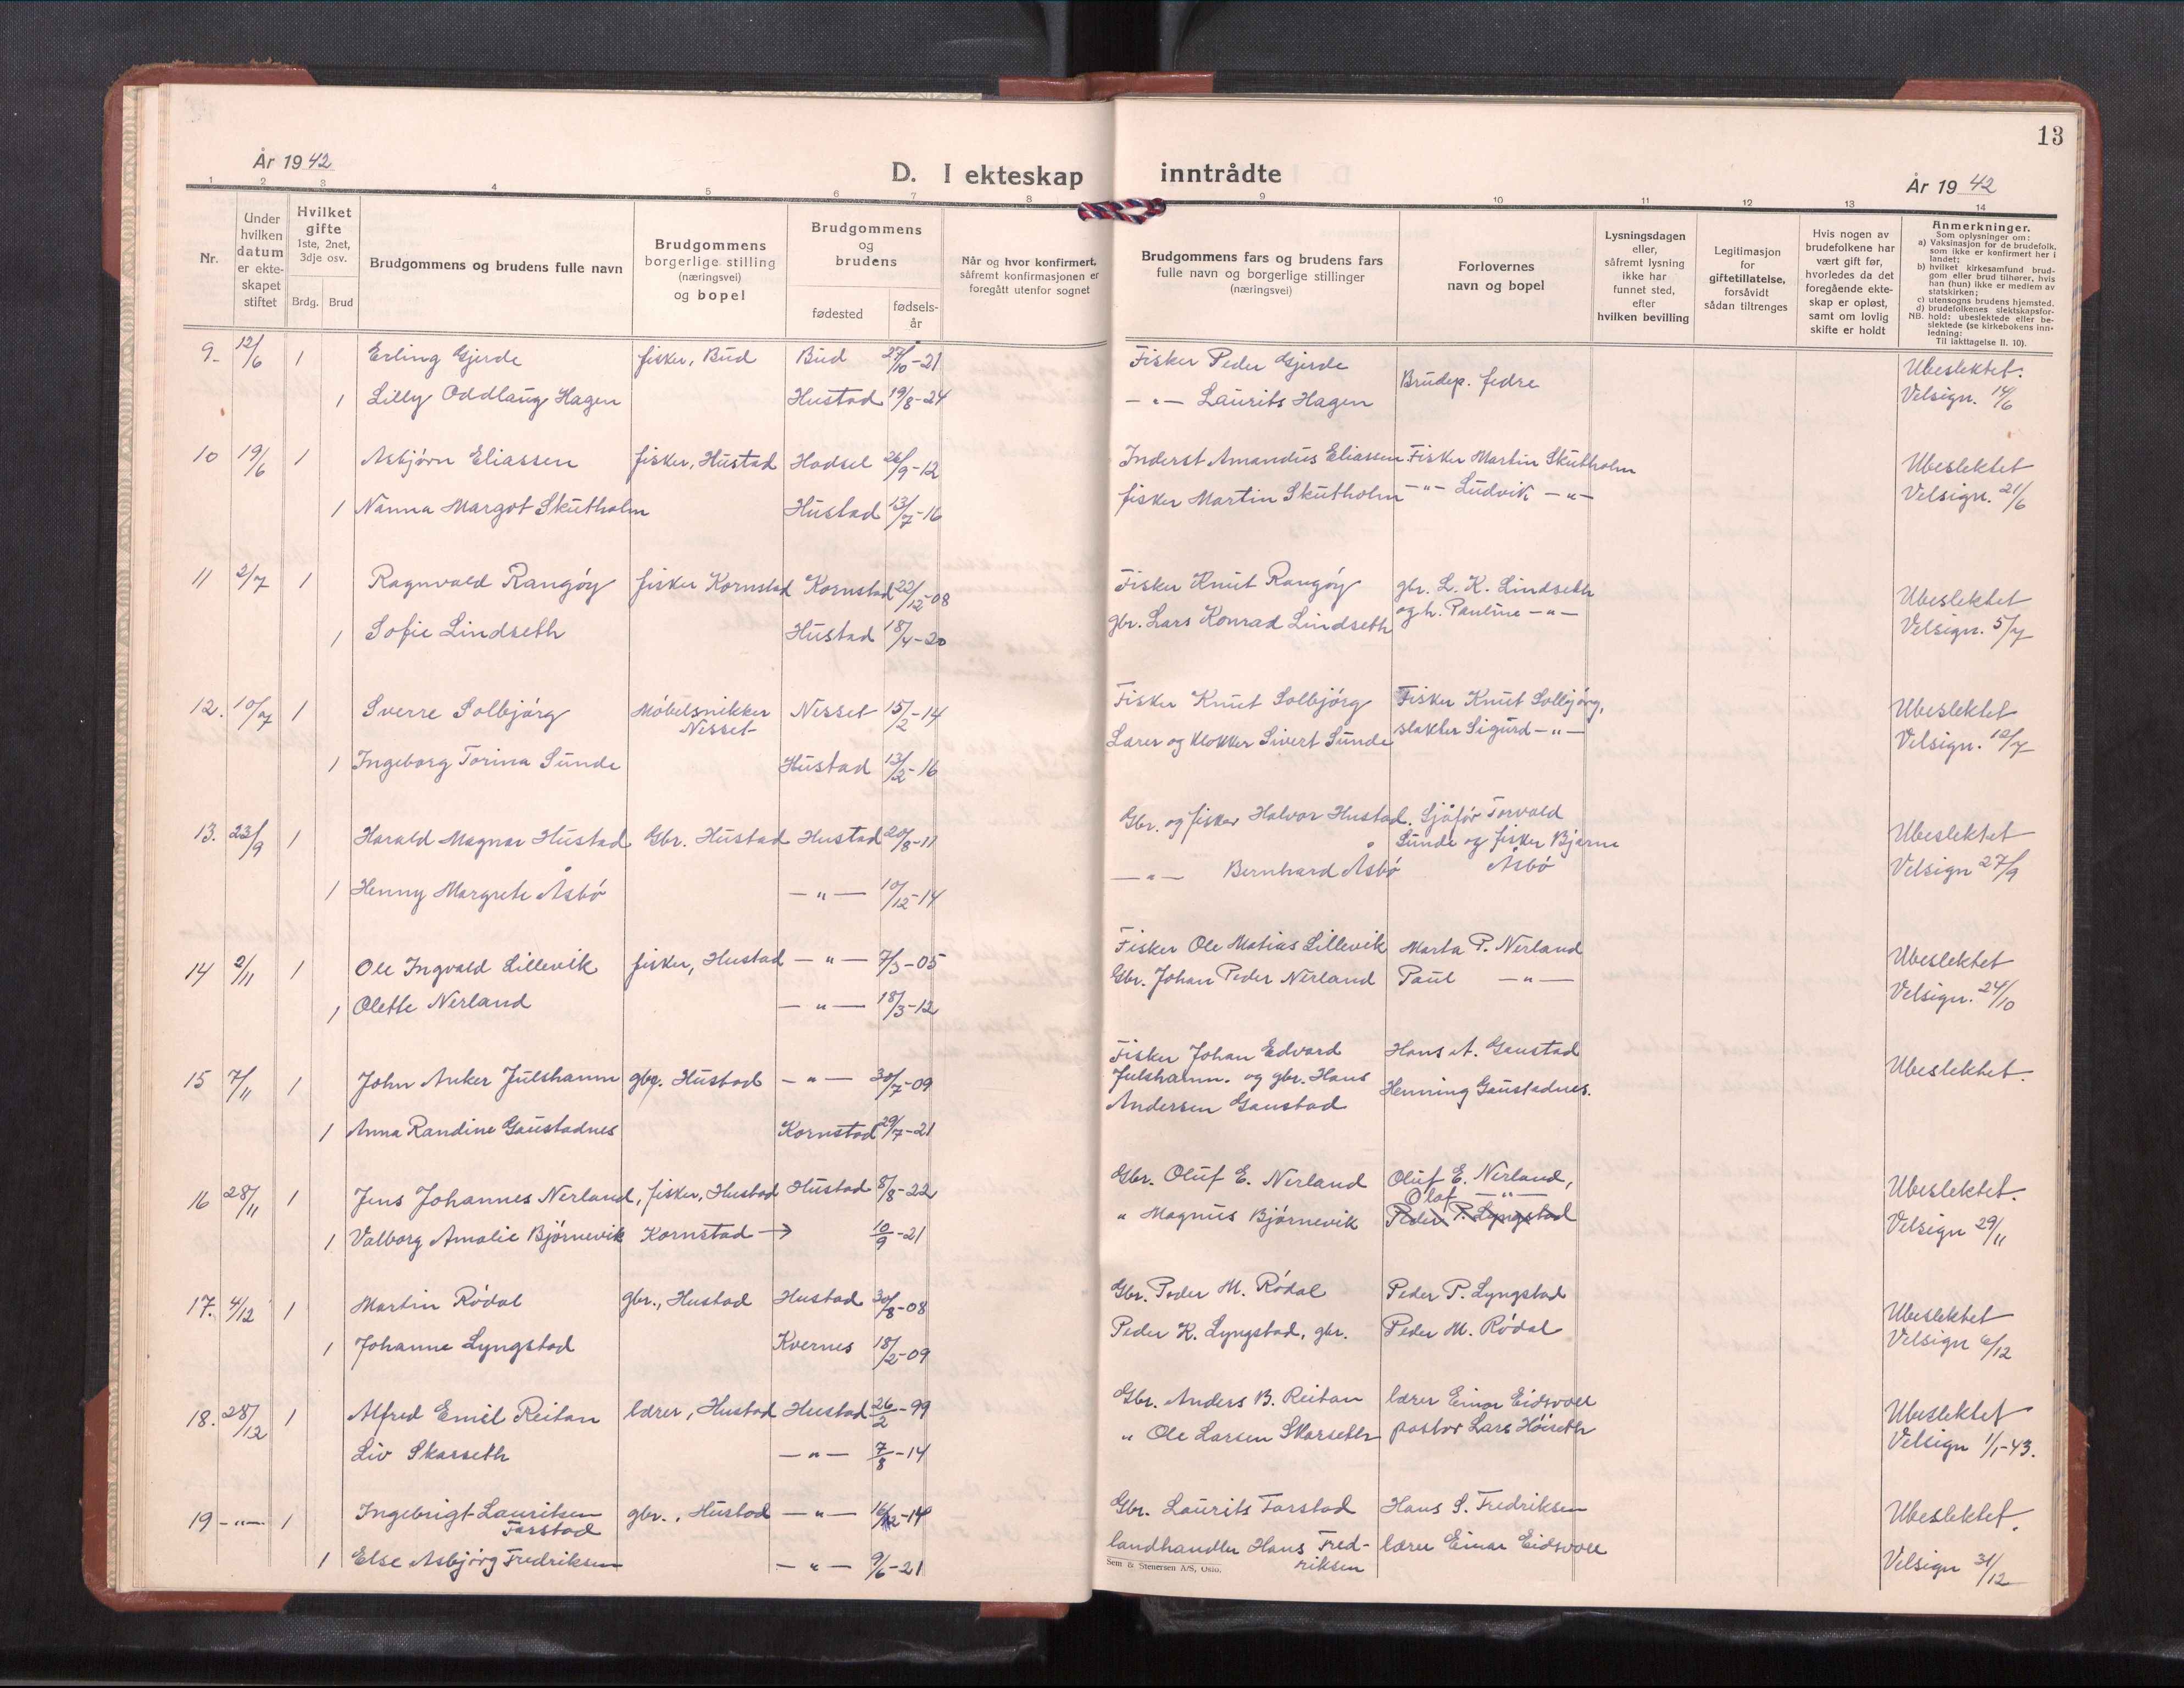 13
År 1942
D. I ekteskap inntrådte
År 1942
1 2 3 4 5 6 7 8 9 10 11 12 13 14
Nr.
Under hvilken datum er ekteskapet stiftet
Hvilket gifte
1ste, 2net, 3dje osv.
Brdg. Brud
Brudgommens og brudens fulle navn
Brudgommens borgerlige stilling (næringsvei) og bopel
Brudgommens og brudens
fødested
fødselsår
Når og hvor konfirmert, såfremt konfirmasjonen er foregått utenfor sognet
Brudgommens fars og brudens fars fulle navn og borgerlige stillinger (næringsvei)
Forlovernes navn og bopel
Lysningsdagen eller, såfremt lysning ikke har funnet sted, efter hvilken bevilling
Legitimasjon for giftetillatelse, forsåvidt sådan tiltrenges
Hvis nogen av brudefolkene har vært gift før, hvorledes da det foregående ekteskap er opløst, samt om lovlig skifte er holdt
Anmerkninger.
Som oplysninger om:
a) Vaksinasjon for de brudefolk, som ikke er konfirmert her i landet;
b) hvilket kirkesamfund brudgom eller brud tilhører, hvis han (hun) ikke er medlem av statskirken;
c) utensogns brudens hjemsted.
d) brudefolkenes slektskapsforhold: ubeslektede eller beslektede (se kirkebokens innledning:
NB.
Til iakttagelse II. 10).
9. 12/6 1 Erling Gjerde fisker, Bud Bud 27/10-21 Fisker Peder Gjerde Brudep. fedre Ubeslektet.
1 Lilly Oddlaug Hagen Hustad 19/8-24 —"— Laurits Hagen Velsign. 14/6
10 19/6 1 Asbjørn Eliassen fisker, Hustad Hadsel 26/9-12 Inderst Amandus Eliassen Fisker Martin Skutholm Ubeslektet
1 Nanna Margot Skutholm Hustad 13/7-16 fisker Martin Skutholm —"— Ludvik —"— Velsign. 21/6
11 2/7 1 Ragnvald Rangøy fisker Kornstad Kornstad 22/12-08 Fisker Knut Rangøy gbr. L. K. Lindseth Ubeslektet
1 Sofie Lindseth Hustad 18/4-20 gbr. Lars Konrad Lindseth og h. Pauline —"— Velsign. 5/7
12. 10/7 1 Sverre Solbjørg Møbelsnikker Nesset Nesset 15/2-14 Fisker Knut Solbjørg Fisker Knut Solbjørg, Ubeslektet
1 Ingeborg Torina Sunde Hustad 13/2-16 Lærer og klokker Sivert Sunde slakter Sigurd —"— Velsign. 12/7
13. 23/9 1 Harald Magnar Hustad Gbr. Hustad Hustad 20/8-11 Gbr. og fisker Halvor Hustad. Sjåfør Torvald Sunde og fisker Bjarne Åsbø Ubeslektet
1 Henny Margrete Åsbø —"— 10/12-14 —"— Bernhard Åsbø Velsign 27/9
14 2/11 1 Ole Ingvald Lillevik fisker, Hustad —"— 7/3-05 Fisker Ole Matias Lillevik Marta P. Nerland Ubeslektet
1 Olette Nerland —"— 18/3-12 Gbr. Johan Peder Nerland Paul —"— Velsign. 24/10
15 7/11 1 John Anker Julshamn gbr. Hustad —"— 30/7-09 Fisker Johan Edvard Julshamn. og gbr. Hans Andersen Gaustad Hans A. Gaustad Ubeslektet.
1 Anna Randine Gaustadnes Kornstad 29/7-21 Henning Gaustadnes.
16 28/11 1 Jens Johannes Nerland, fisker, Hustad Hustad 8/8-22 Gbr. Oluf E. Nerland Oluf E. Nerland, Olaf —"— Ubeslektet.
1 Valborg Amalie Bjørnevik Kornstad → 10/9-21 " Magnus Bjørnevik Peder P. Lyngstad Velsign 29/11
17. 4/12 1 Martin Rødal gbr., Hustad Hustad 30/8-08 Gbr. Peder M. Rødal Peder P. Lyngstad Ubeslektet
1 Johanne Lyngstad Kvernes 18/2-09 Peder K. Lyngstad, gbr. Peder M. Rødal Velsign 6/12
18. 28/12 1 Alfred Emil Reitan lærer, Hustad Hustad 26/2-99 Gbr. Anders B. Reitan lærer Einar Eidsvoll Ubeslektet
Liv Skarseth —"— 7/8-14 " Ole Larsen Skarseth pastor Lars Høiseth Velsign 1/1-43.
19 —"— 1 Ingebrigt Lauritsen Farstad gbr., Hustad —"— 16/12-14 Gbr. Laurits Farstad Hans S. Fredriksen Ubeslektet.
1 Else Asbjørg Fredriksen —"— 9/6-21 landhandler Hans Fredriksen lærer Einar Eidsvoll Velsign 31/12
Sem & Stenersen A/S, Oslo.